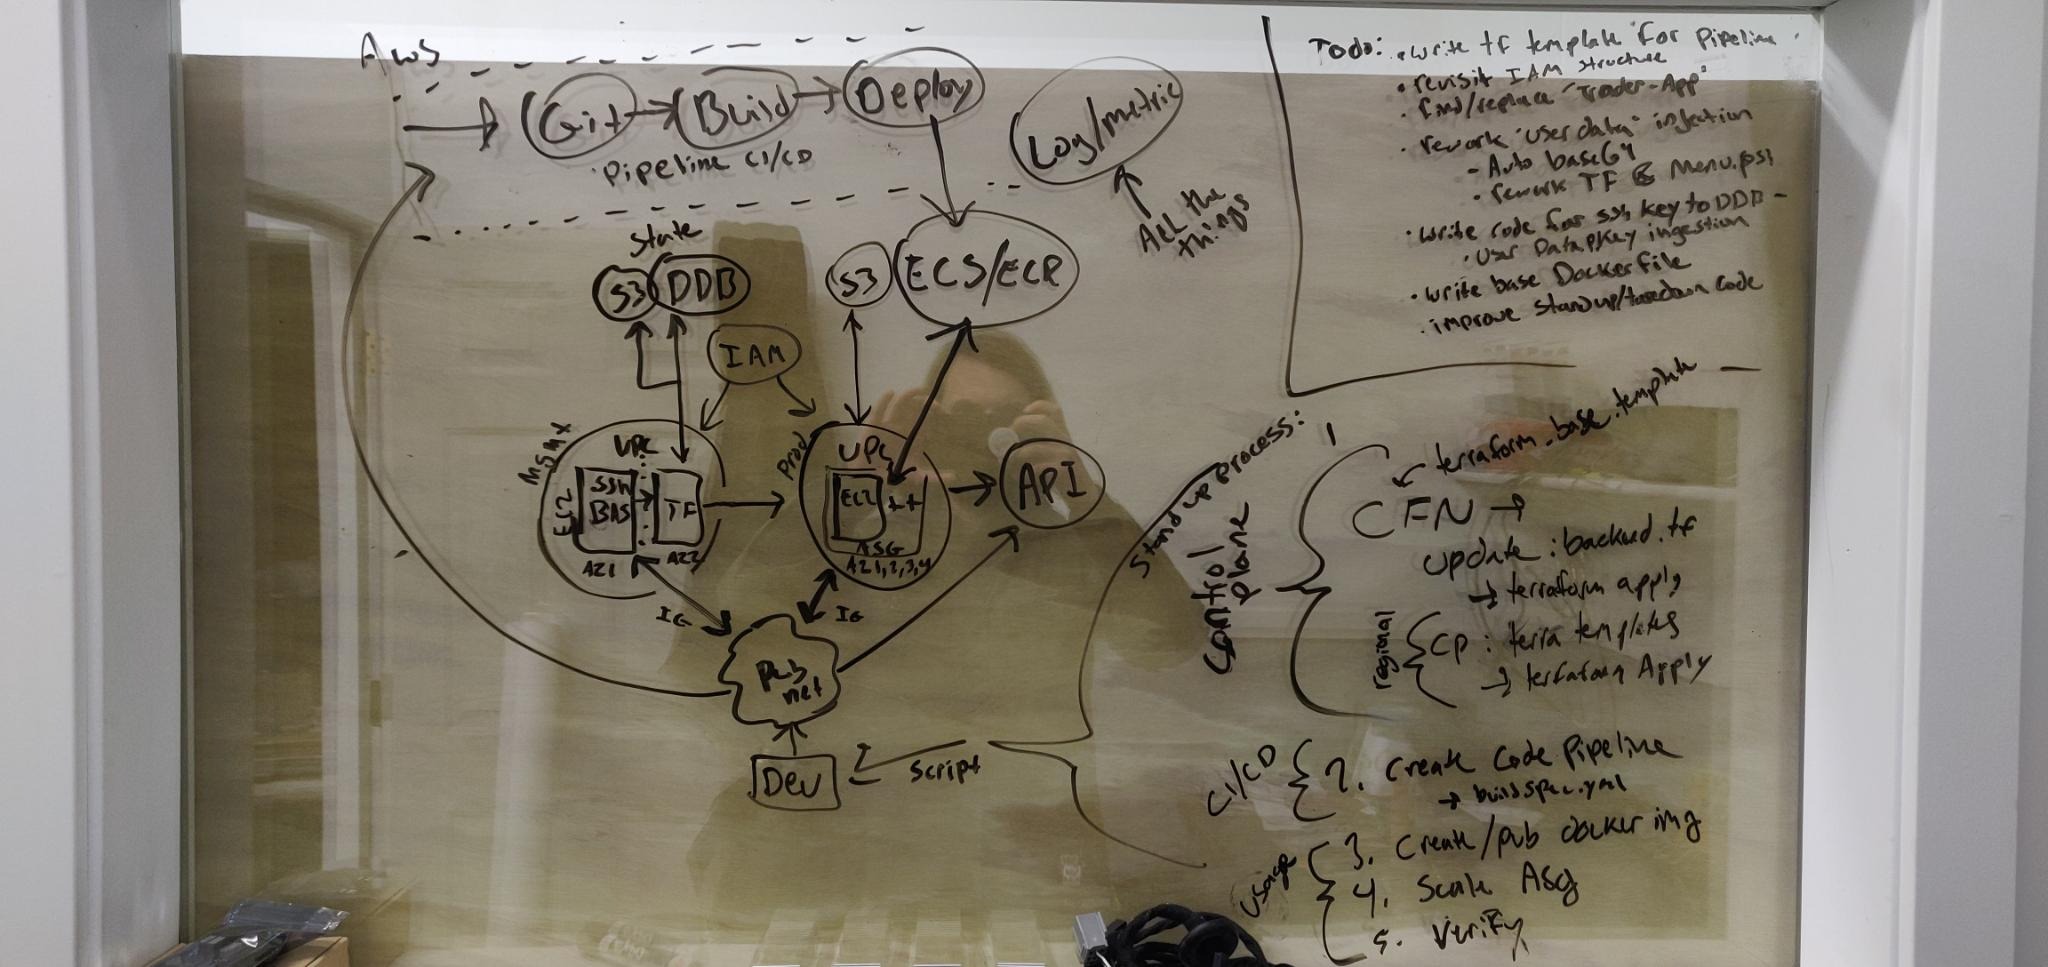 AWS
Git
Build
Deploy
Pipeline CI/CD
Log/metric
ALL the
things
State
S3
DDB
S3
ECS/ECR
IAM
Mgmt
VPC
EC2
SSH
BAS
TF
AZ1
AZ2
Prod
VPC
EC2
++
ASG
AZ1,2,3,4
API
IG
IG
Pub
net
Dev
Script
Todo: • write tf template for Pipeline
• revisit IAM structure
• find/replace "Trader-App"
• rework "user data" injection
- Auto base64
• rework TF & Menu.ps1
• write code for ssh key to DDB -
• User Data pkey ingestion
• write base Dockerfile
• improve standup/takedown code
Stand up process:
Control
plane
1
terraform_base.template
CFN →
update: backend.tf
→ terraform apply
regional
CP: terra templates
→ terraform Apply
CI/CD
2. Create Code Pipeline
→ buildspec.yml
usage
3. Create/pub docker img
4. Scale ASG
5. Verify